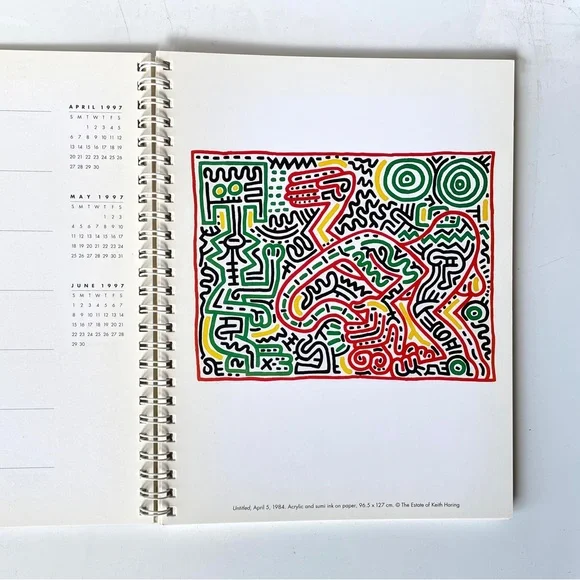 APRIL 1997
S M T W T F S
1 2 3 4 5
6 7 8 9 10 11 12
13 14 15 16 17 18 19
20 21 22 23 24 25 26
27 28 29 30
MAY 1997
S M T W T F S
1 2 3
4 5 6 7 8 9 10
11 12 13 14 15 16 17
18 19 20 21 22 23 24
25 26 27 28 29 30 31
JUNE 1997
S M T W T F S
1 2 3 4 5 6 7
8 9 10 11 12 13 14
15 16 17 18 19 20 21
22 23 24 25 26 27 28
29 30
Untitled, April 5, 1984. Acrylic and sumi ink on paper, 96.5 x 127 cm. © The Estate of Keith Haring